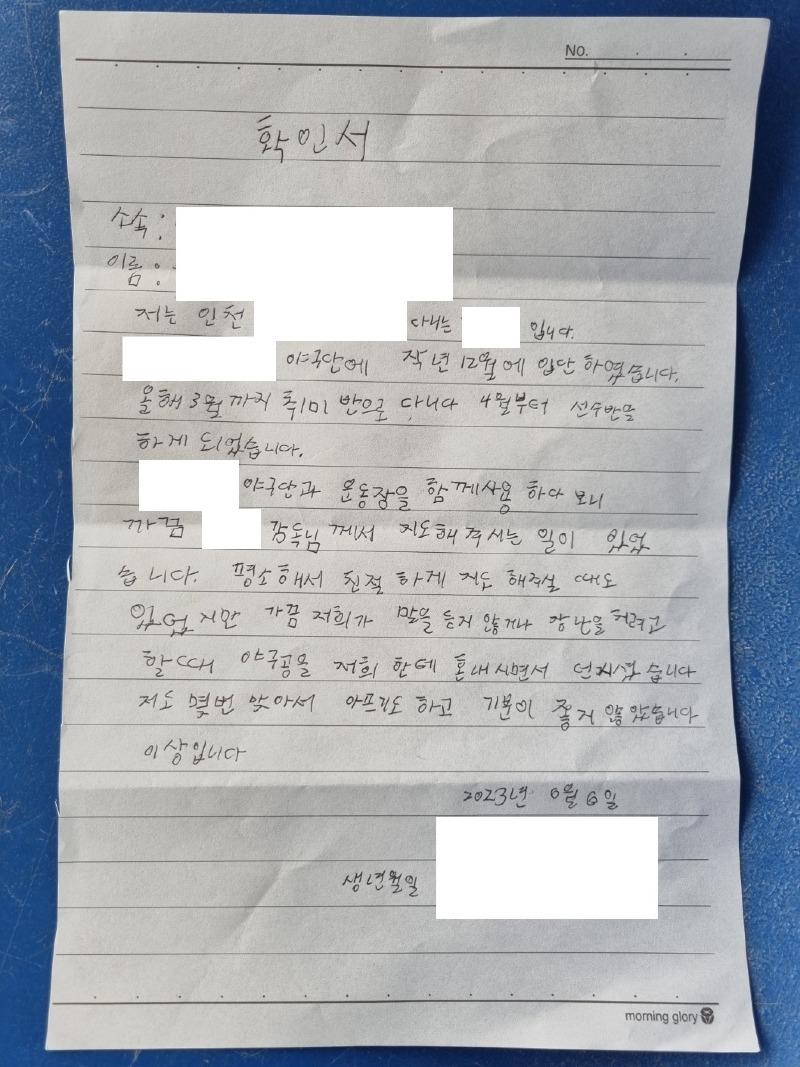 No. . .
확인서
소속:
이름:
저는 인천 다니는 입니다.
야구단에 작년 12월에 입단 하였습니다.
올해 3월 까지 취미 반으로 다니다 4월부터 선수반을
하게 되었습니다.
야구단과 운동장을 함께사용 하다 보니
가끔 감독님 께서 지도해 주시는 일이 있었
습니다. 평소해서 친절 하게 지도 해주실 때도
있었지만 가끔 저희가 말을 듣지 않거나 장난을 치려고
할때 야구공을 저희 한테 혼내시면서 던지셨습니다
저도 몇번 맞아서 아프기도 하고 기분이 좋지 않았습니다
이상입니다
2023년 6월 6일
생년월일
morning glory